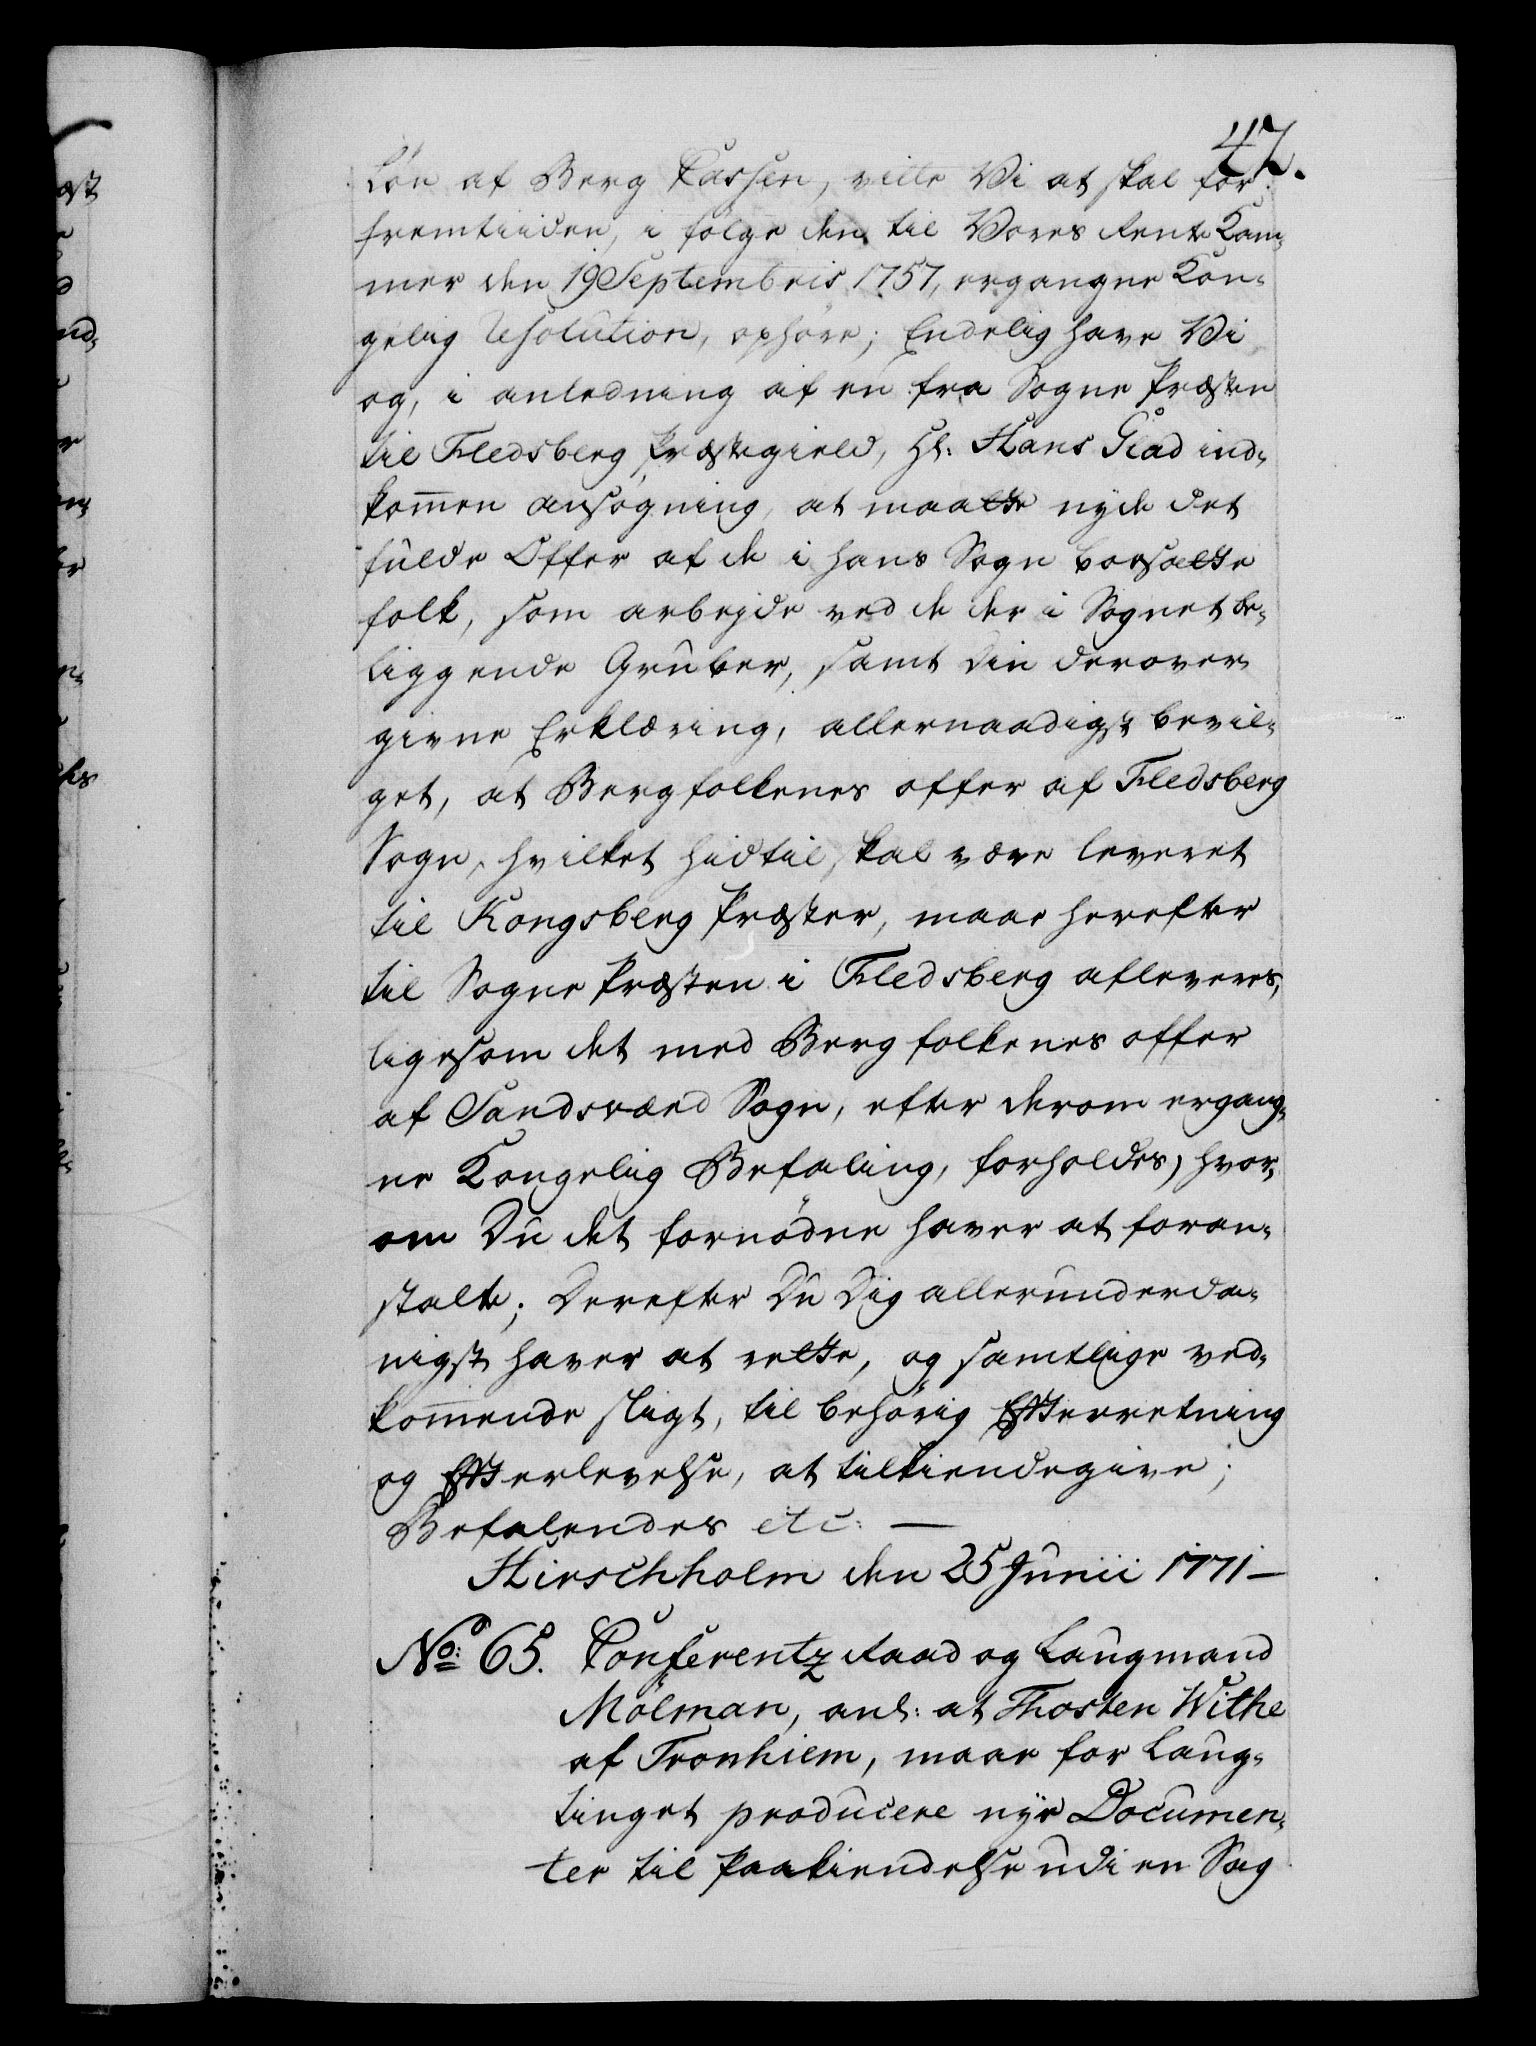 47.
Løn af Berg Cassen, ville Vi at skal for
fremtiiden, i følge den til Vores Rente Kam-
mer den 19 Septembris 1757, ergangne Kon-
gelig Resolution, ophøre; Endelig have Vi
og, i anledning af en fra Sogne Præsten
til Fledsberg Præstegield, Hr: Hans Glad ind-
kommen ansøgning, at maatte nyde det
fulde Offer af de i hans Sogn boesatte
folk, som arbejde ved de der i Sognet be-
liggende Gruber, samt Din derover
givne Erklæring, allernaadigst bevil-
get, at Bergfolkenes offer af Fledsberg
Sogn, hvilket hidtil skal være leveret
til Kongsberg Præster, maae herefter
til Sogne Præsten i Fledsberg afleveres,
ligesom det med Bergfolkenes offer
af Sandsværd Sogn, efter derom ergang-
ne Kongelig Befaling, forholdes, hvor-
om Du det fornødne haver at foran-
stalte; Derefter Du Dig allerunderda-
nigst haver at rette, og samtlige ved-
kommende sligt, til behørig Efterretning
og Efterlevelse, at tilkiendegive;
Befalendes etc: —
Hirschholm den 25 Junii 1771 —
No: 65. Conferentz Raad og Laugmand
Mölman, anl: at Thosten Withe
af Tronhiem, maae for Laug-
tinget producere nye Documen-
ter til Paakiendelse udi en Sag